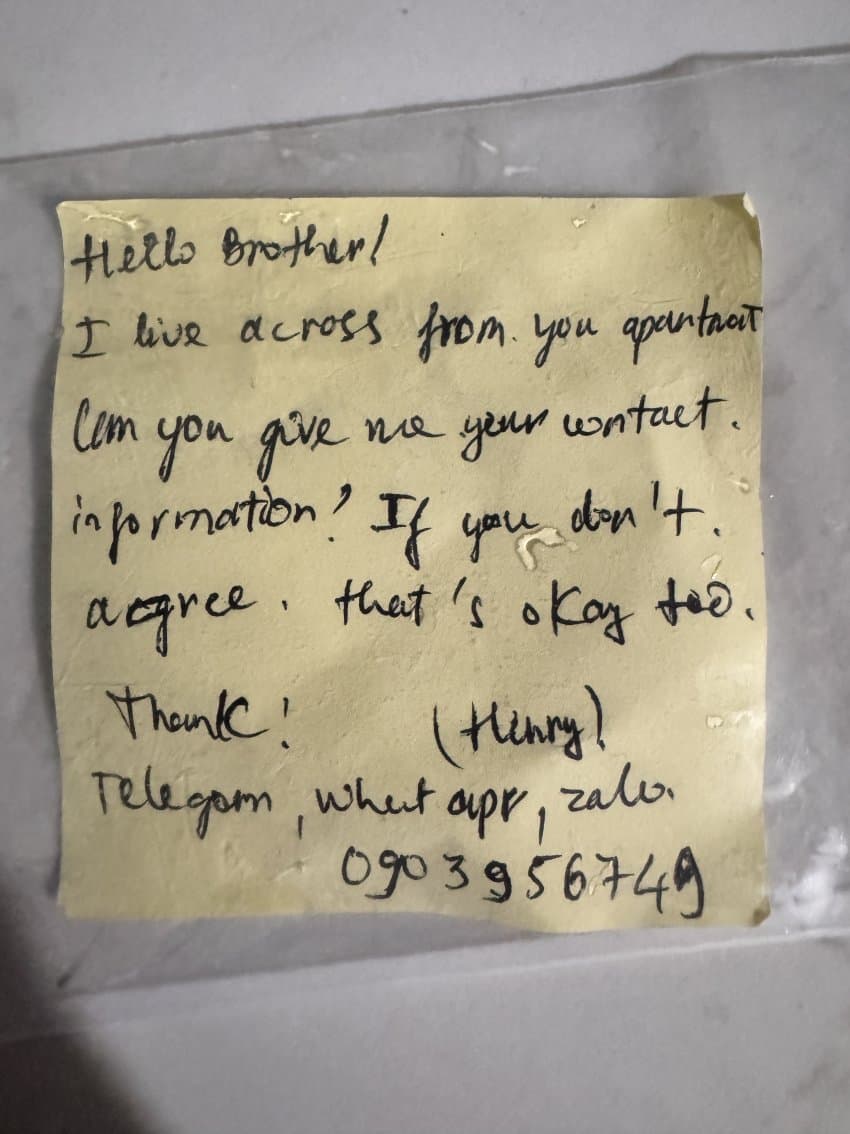 Hello Brother!
I live across from. you apantmat
Can you give me your contact.
information? If you don't.
agree. that's okay too.
Thank! (Henry)
Telegam, What apr, zalo.
0903956749